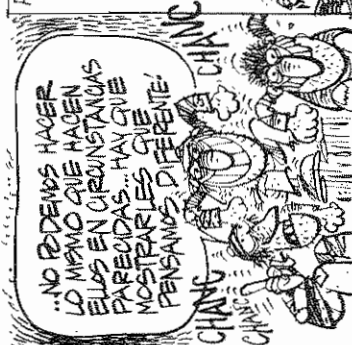 ...NO PODEMOS HACER
LO MISMO QUE HACEN
ELLOS EN CIRCUNSTANCIAS
PARECIDAS... HAY QUE
MOSTRARLES QUE
PENSAMOS DIFERENTE!
CHANC
CHANC
CHANC
CHANC